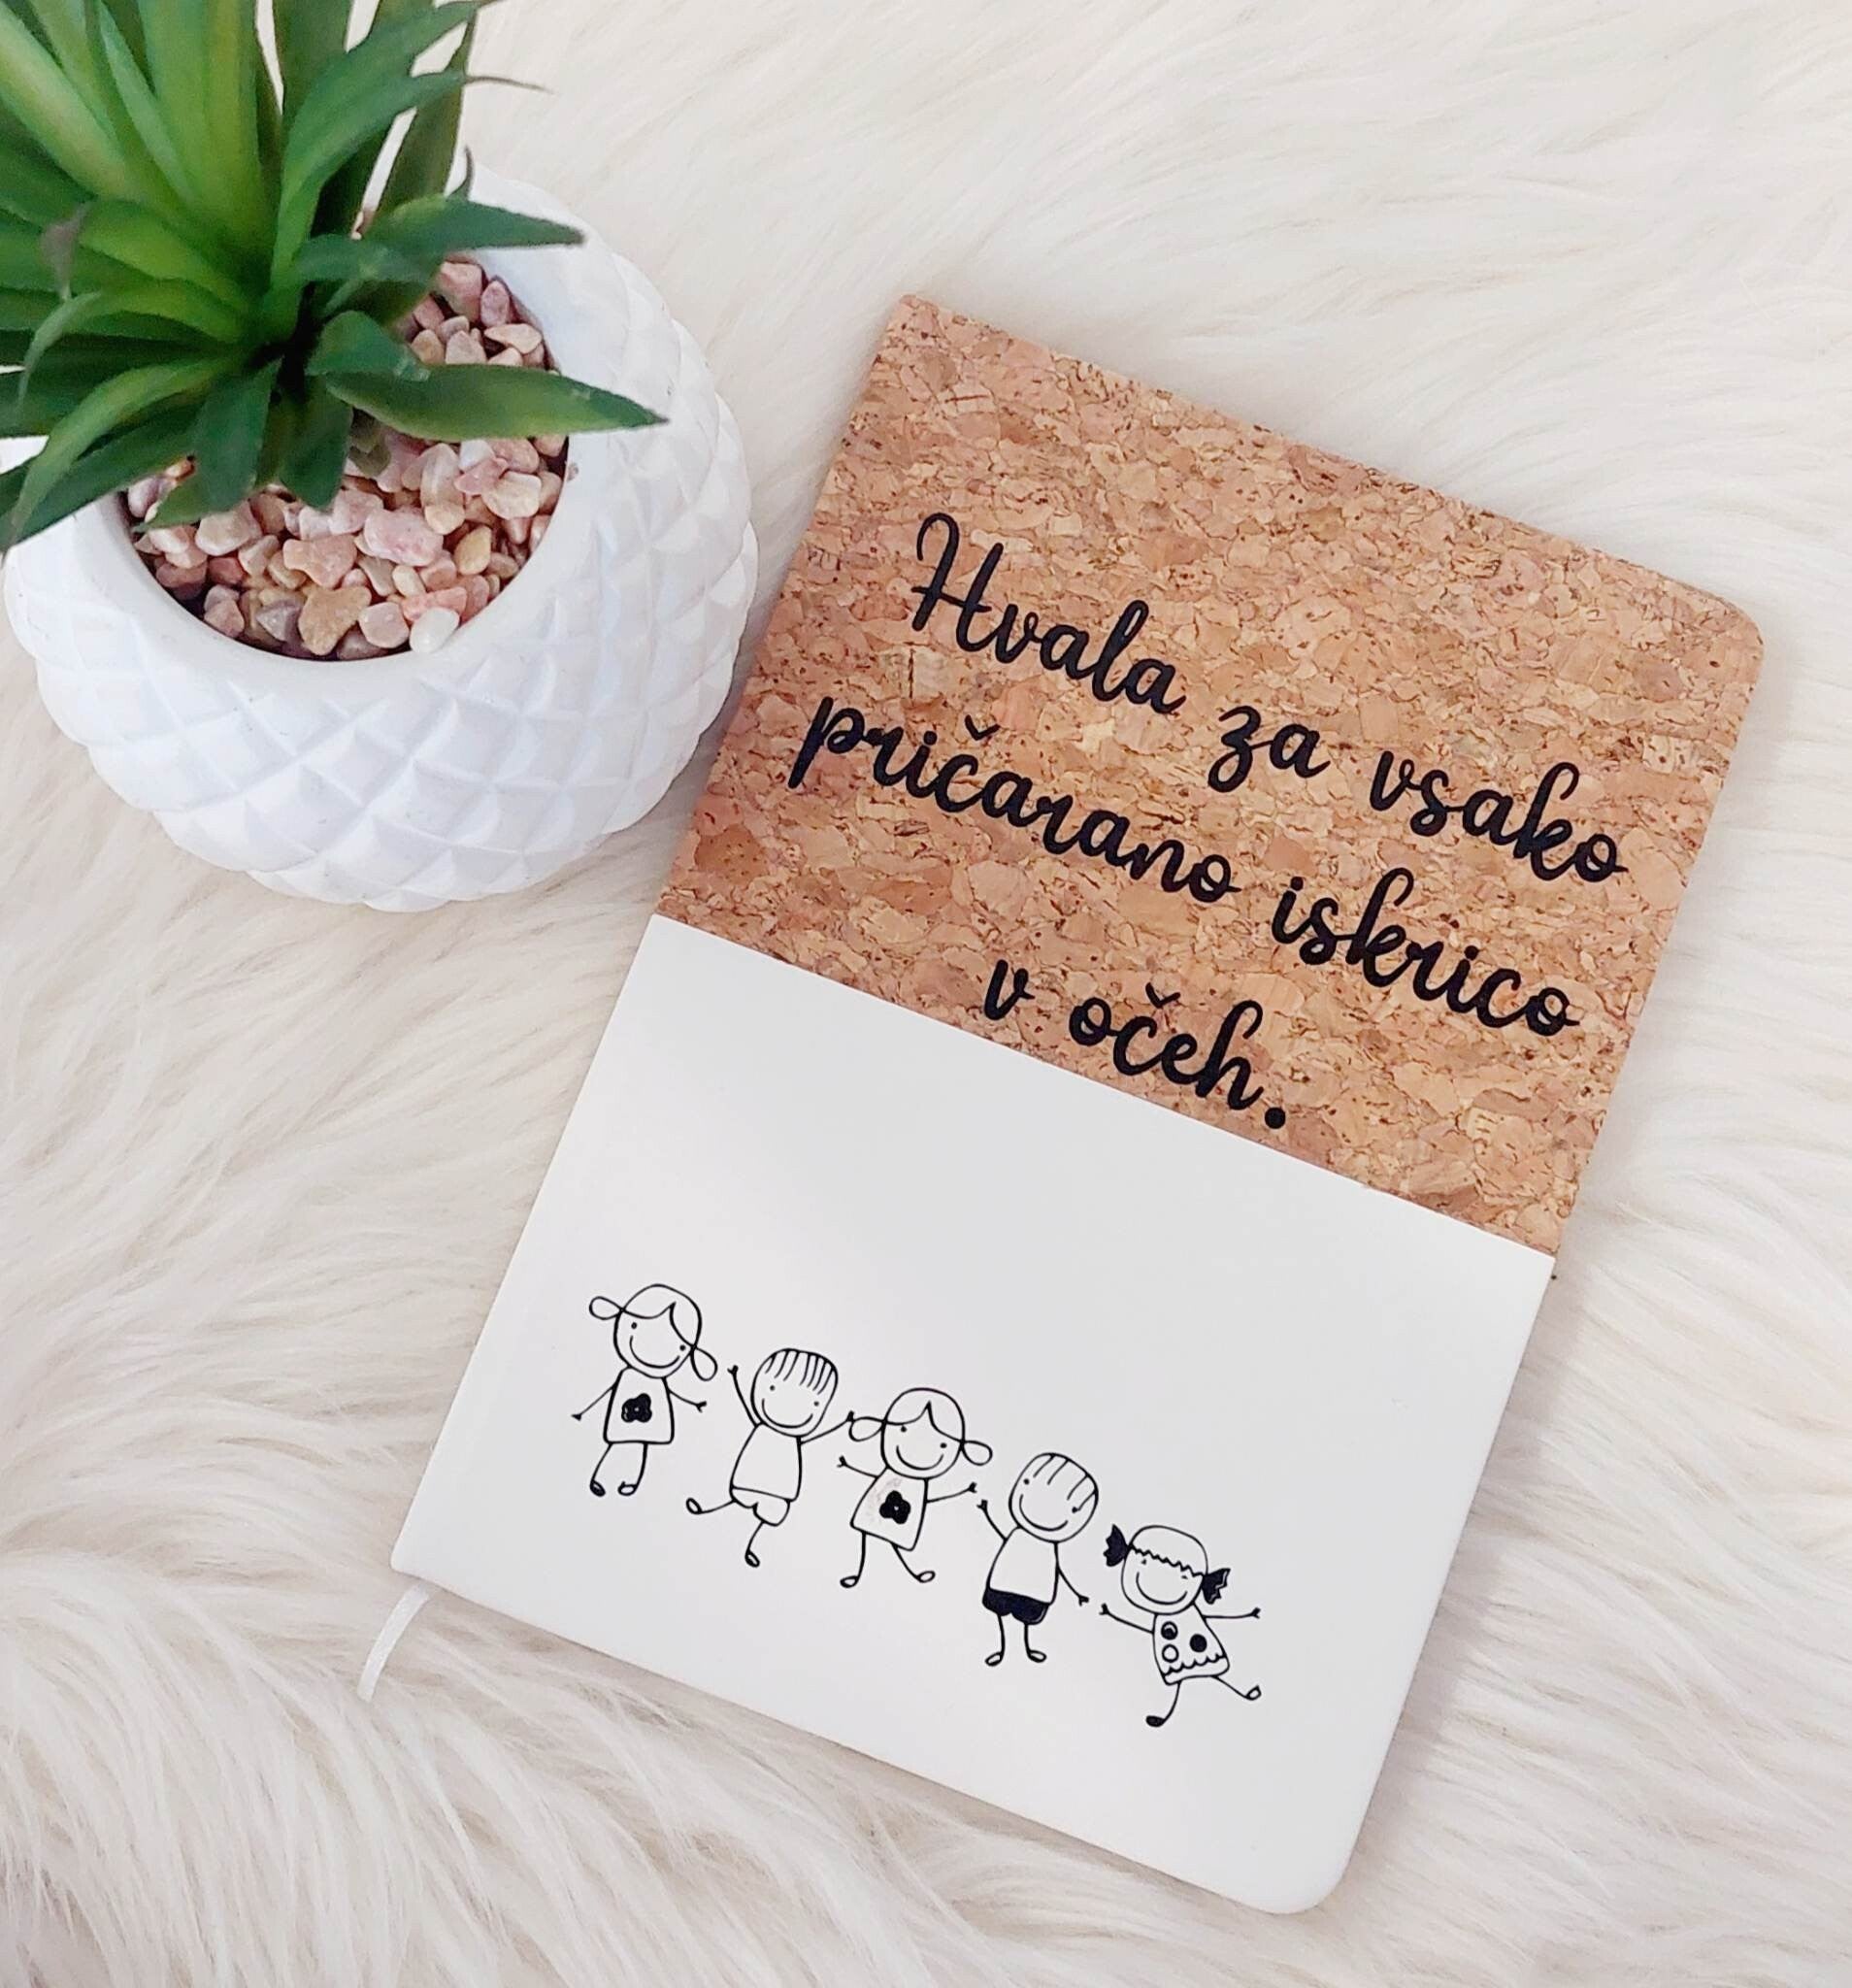 Hvala za vsako
pričarano iskrico
v očeh.